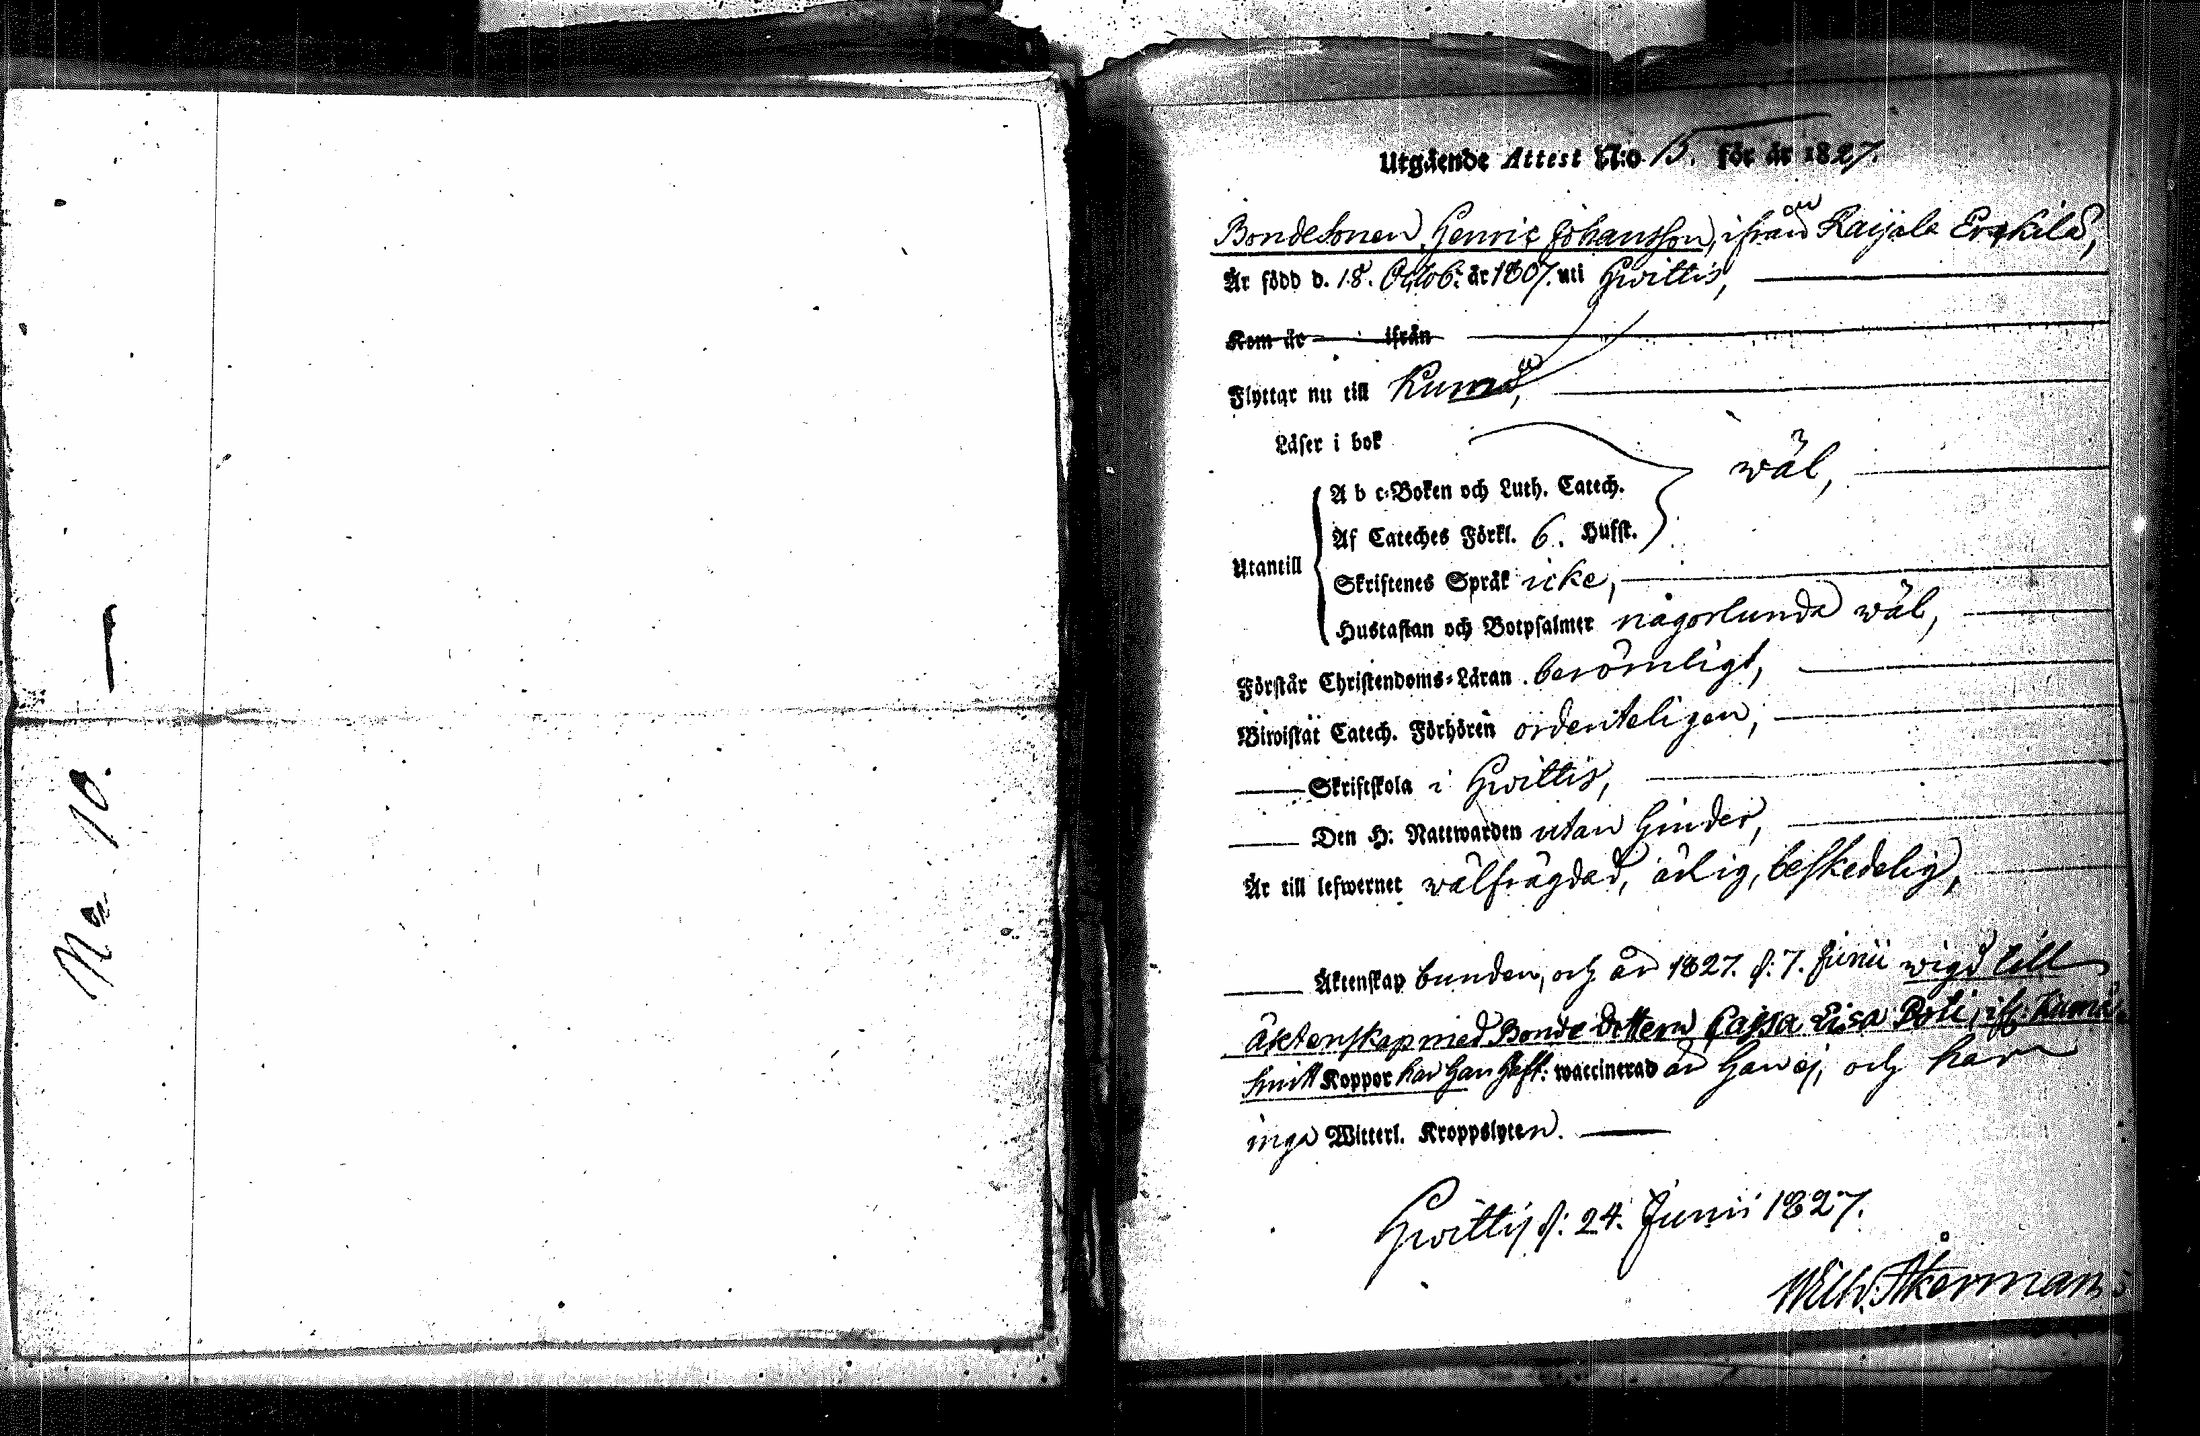 No 10.
Utgående Attest N:o 15. för år 1827.
Bondesonen Henric Johansson, ifrån Raijala Erkilä,
Är född d. 18. Octob: år 1807. uti Hwittis,
Kom år ifrån
Flyttar nu till Kumå,
Läser i bok
wäl,
A b c-Boken och Luth. Catech.
Af Cateches Förkl. 6. Hufst.
Utantill
Skriftenes Språk icke,
Hustaflan och Botpsalmer någorlunda wäl,
Förstår Christendoms-Läran berömligt,
Biwistat Catech. Förhören ordenteligen,
Skriftskola i Hwittis,
Den H: Nattwarden utan hinder,
Är till lefwernet wälfrägdad, ärlig, beskedelig,
Äktenskap bunden, och är 1827. d: 7. Junii wigd till
äktenskap med Bonde Dottern Cajsa Lisa Poti, ifr: Kumå.
Koppor har han haft: waccinerad är han ej, och har
inga Witterl. Kroppslyten.
Hwittis d: 24. Junii 1827.
Wilh. Åkerman